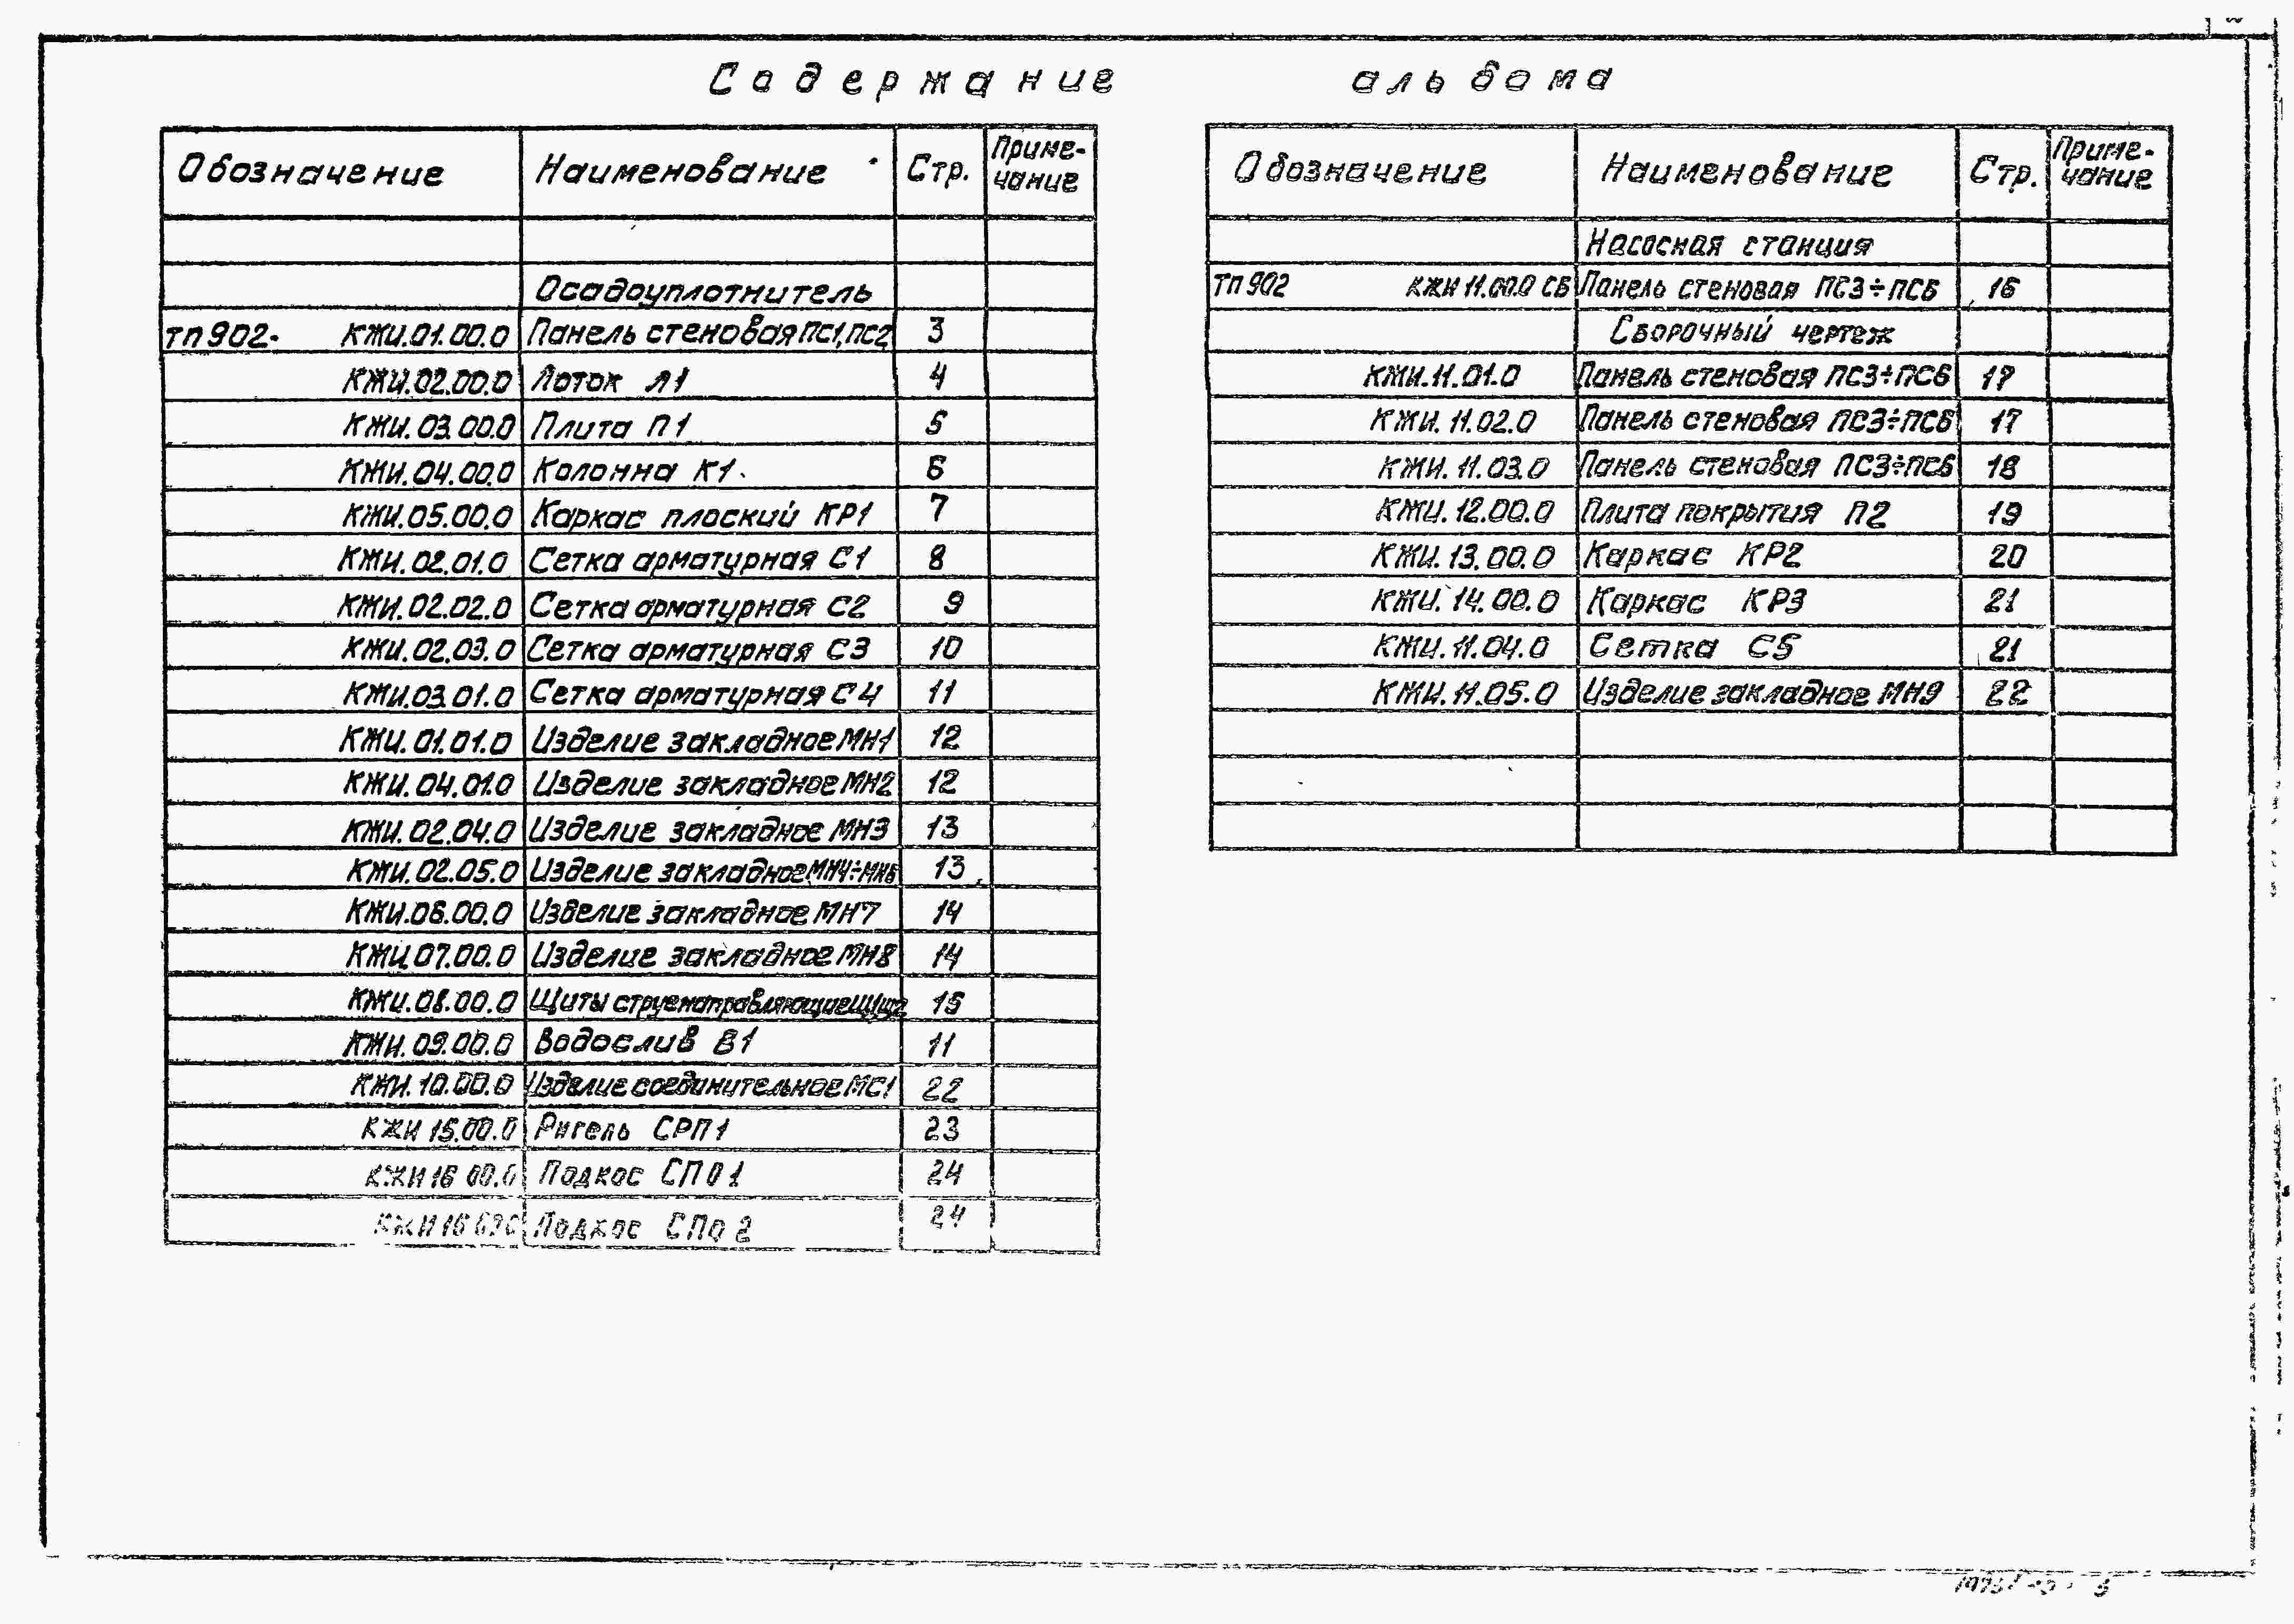 Содержание альбома
Обозначение Наименование Стр. Приме-
чание
Осадоуплотнитель
ТП 902- КЖИ.01.00.0 Панель стеновая ПС1, ПС2 3
КЖИ.02.00.0 Лоток Л1 4
КЖИ.03.00.0 Плита П1 5
КЖИ.04.00.0 Колонна К1 6
КЖИ.05.00.0 Каркас плоский КР1 7
КЖИ.02.01.0 Сетка арматурная С1 8
КЖИ.02.02.0 Сетка арматурная С2 9
КЖИ.02.03.0 Сетка арматурная С3 10
КЖИ.03.01.0 Сетка арматурная С4 11
КЖИ.01.01.0 Изделие закладное МН1 12
КЖИ.04.01.0 Изделие закладное МН2 12
КЖИ.02.04.0 Изделие закладное МН3 13
КЖИ.02.05.0 Изделие закладное МН4÷МН6 13
КЖИ.06.00.0 Изделие закладное МН7 14
КЖИ.07.00.0 Изделие закладное МН8 14
КЖИ.08.00.0 Щиты струенаправляющие Щ1,Щ2 15
КЖИ.09.00.0 Водослив В1 11
КЖИ.10.00.0 Изделие соединительное МС1 22
КЖИ 15.00.0 Ригель СРП1 23
КЖИ 16 00.0 Подкос СП01 24
КЖИ 16 Подкос СП02 24
Обозначение Наименование Стр. Приме-
чание
Насосная станция
ТП 902 КЖИ 11.00.0 СБ Панель стеновая ПС3÷ПС6 16
Сборочный чертеж
КЖИ.11.01.0 Панель стеновая ПС3÷ПС6 17
КЖИ.11.02.0 Панель стеновая ПС3÷ПС6 17
КЖИ.11.03.0 Панель стеновая ПС3÷ПС6 18
КЖИ.12.00.0 Плита покрытия П2 19
КЖИ.13.00.0 Каркас КР2 20
КЖИ.14.00.0 Каркас КР3 21
КЖИ.11.04.0 Сетка С5 21
КЖИ.11.05.0 Изделие закладное МН9 22